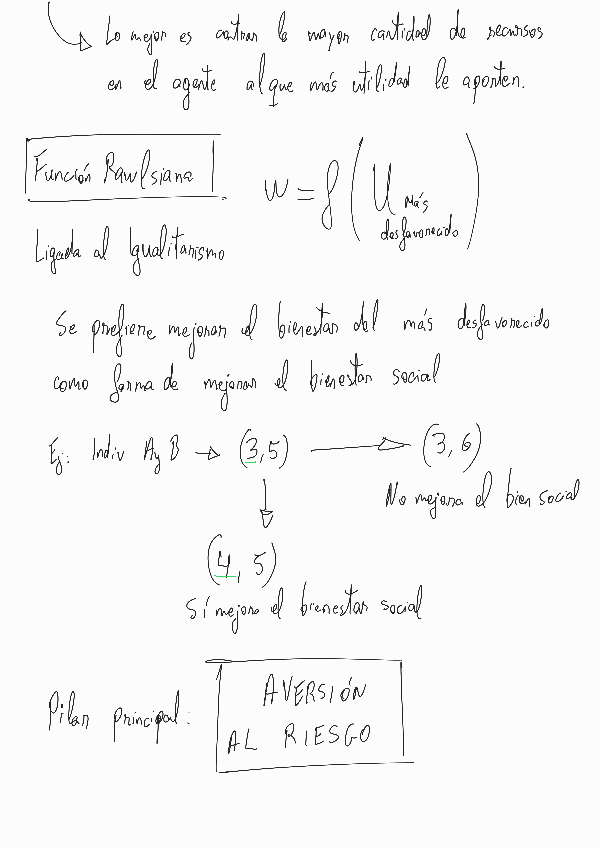 Lo mejor es centrar la mayor cantidad de recursos
en el agente al que más utilidad le aporten.
Función Rawlsiana
W = f (U más desfavorecido)
Ligada al Igualitarismo
Se prefiere mejorar el bienestar del más desfavorecido
como forma de mejorar el bienestar social
Ej: Indiv A y B → (3,5) → (3,6)
No mejora el bien social
(4, 5)
Sí mejora el bienestar social
Pilar principal:
AVERSIÓN
AL RIESGO